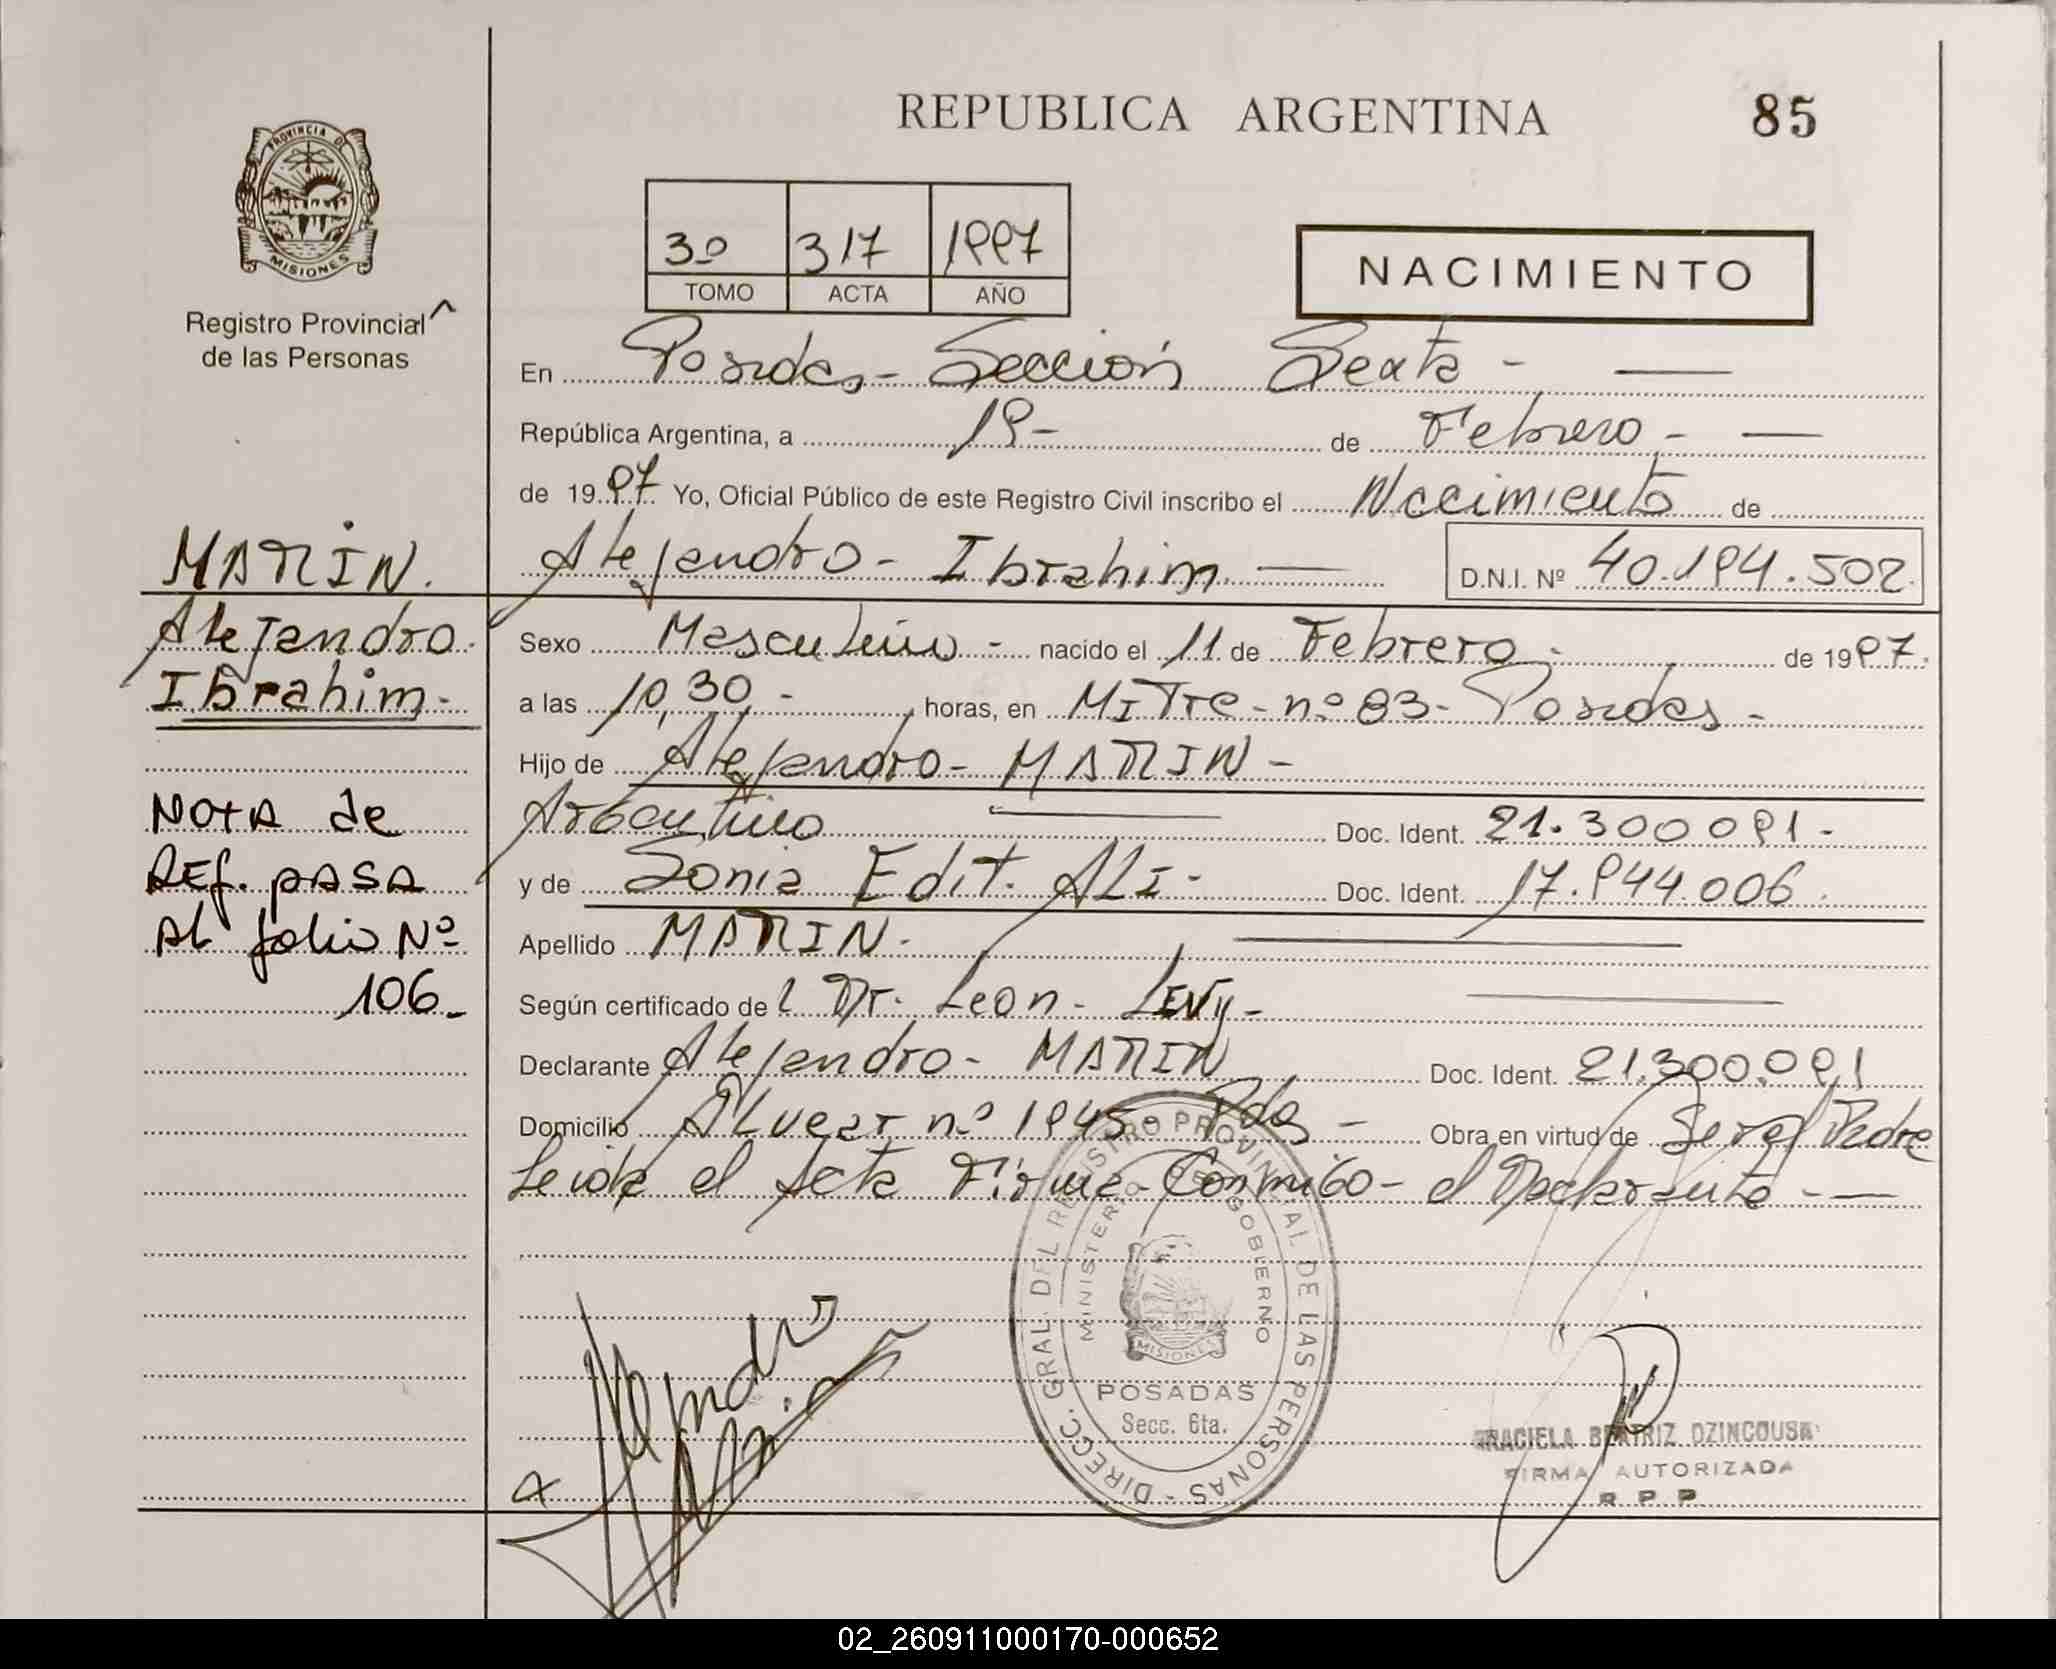 REPUBLICA ARGENTINA
85
PROVINCIA DE
MISIONES
Registro Provincial
de las Personas
3º 317 1997
TOMO ACTA AÑO
NACIMIENTO
En Posadas - Sección Sexta -
República Argentina, a 19 - de Febrero -
de 1997 Yo, Oficial Público de este Registro Civil inscribo el Nacimiento de
Alejandro - Ibrahim
D.N.I. Nº 40.194.502
Sexo Masculino - nacido el 11 de Febrero - de 1997
a las 10,30 - horas, en Mitre - nº 83 - Posadas -
Hijo de Alejandro - MARIN -
Argentino Doc. Ident. 21.300091 -
y de Sonia Edit. ALI - Doc. Ident. 17.944.006
Apellido MARIN -
Según certificado del Dr. Leon - LEVy -
Declarante Alejandro - MARIN Doc. Ident. 21.300.091
Domicilio Alvear nº 1945 - Pdas - Obra en virtud de Ser el Padre
Leida el Acta Firma Conmigo - el Declarante -
MARIN.
Alejandro.
Ibrahim -
NOTA de
REf. pASA
AL folio Nº
106 -
Alejandro Marin
DIRECC. GRAL. DEL REGISTRO PROVINCIAL DE LAS PERSONAS -
MINISTERIO DE GOBIERNO
MISIONES
POSADAS
Secc. 6ta.
GRACIELA BEATRIZ DZINCOUSA
FIRMA AUTORIZADA
R P P
02_260911000170-000652